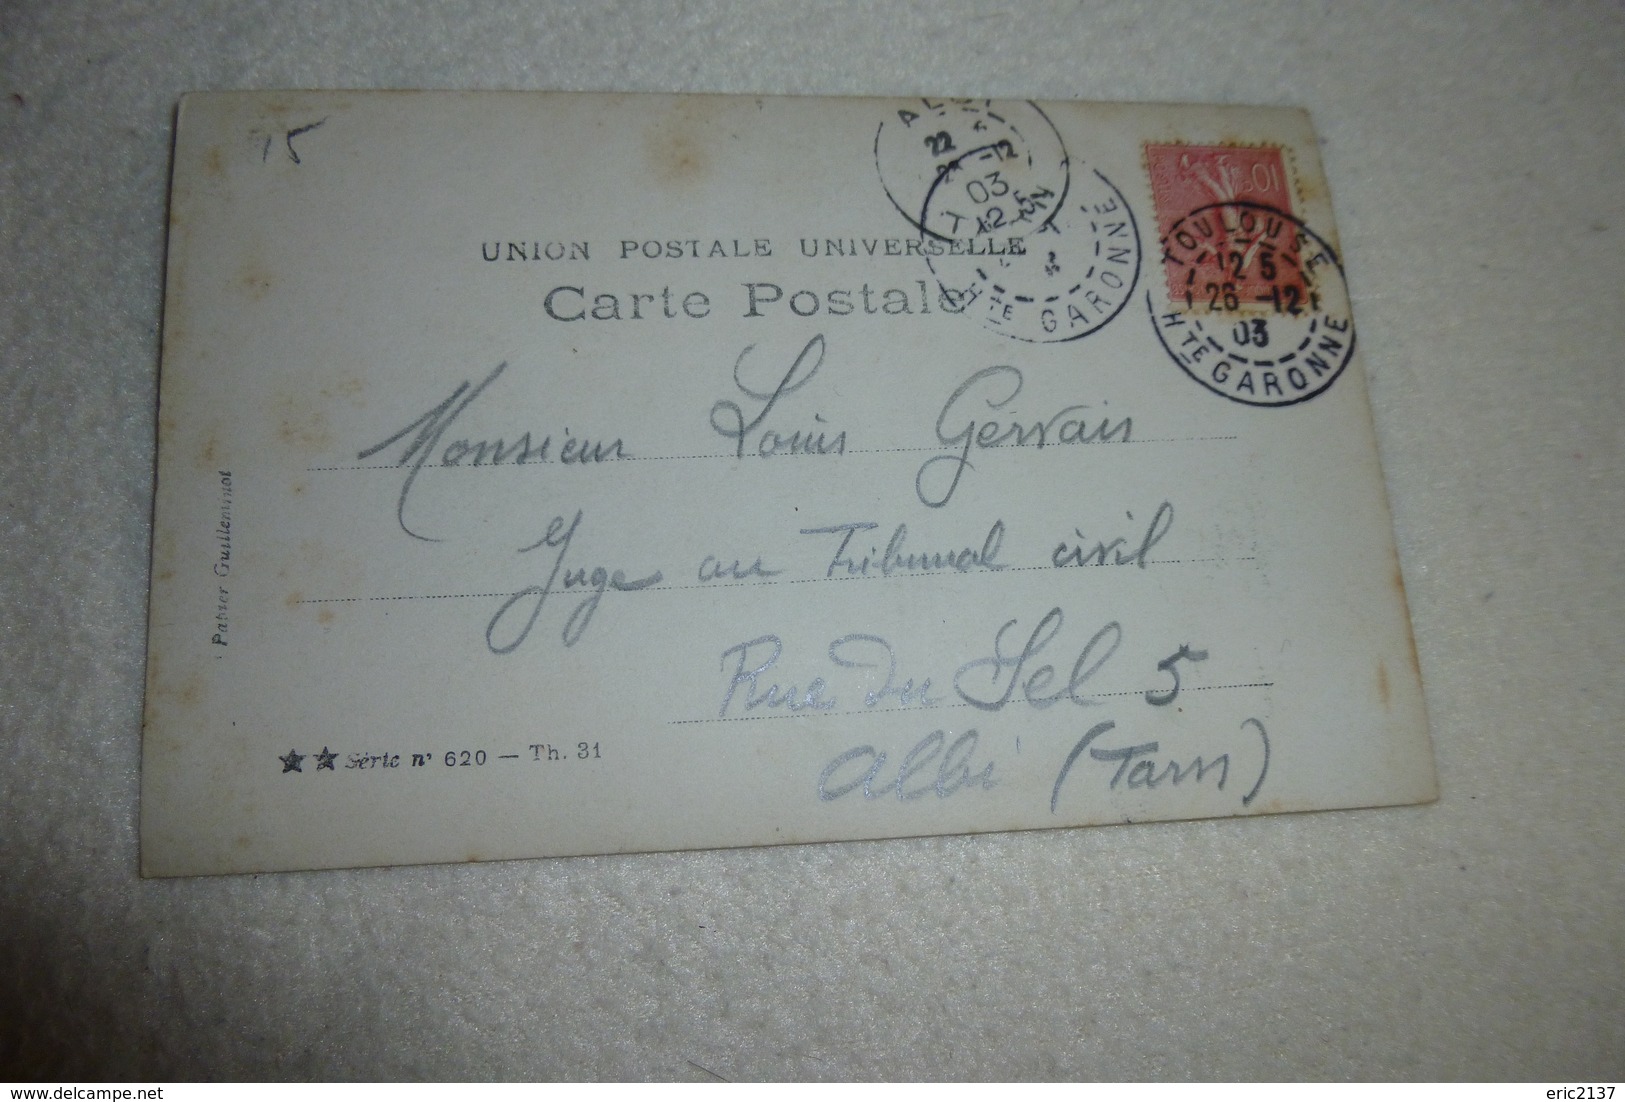 15
UNION POSTALE UNIVERSELLE
Carte Postale
Monsieur Louis Gervais
Juge au Tribunal civil
Rue du Sel 5
Albi (Tarn)
Papier Guilleminot
★★ Série n° 620 — Th. 31
10
TOULOUSE
12 5
26 -12
03
HTE GARONNE
03
12
HTE GARONNE
delcampe.net
eric2137